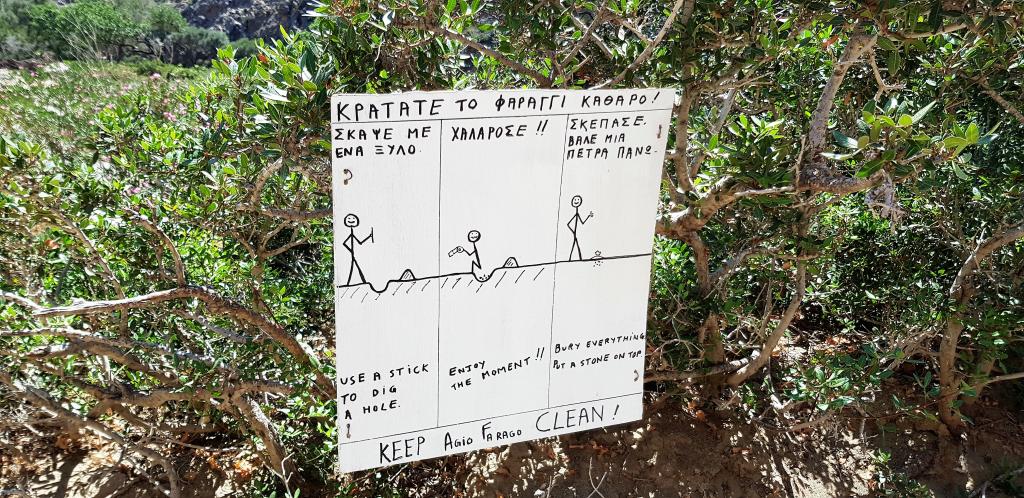 ΚΡΑΤΑΤΕ ΤΟ ΦΑΡΑΓΓΙ ΚΑΘΑΡΟ!
ΣΚΑΨΕ ΜΕ
ΕΝΑ ΞΥΛΟ.
ΧΑΛΑΡΟΣΕ!!
ΣΚΕΠΑΣΕ.
ΒΑΛΕ ΜΙΑ
ΠΕΤΡΑ ΠΑΝΩ.
USE A STICK
TO DIG
A HOLE.
ENJOY
THE MOMENT!!
BURY EVERYTHING
PUT A STONE ON TOP.
KEEP AGIO FARAGO CLEAN!